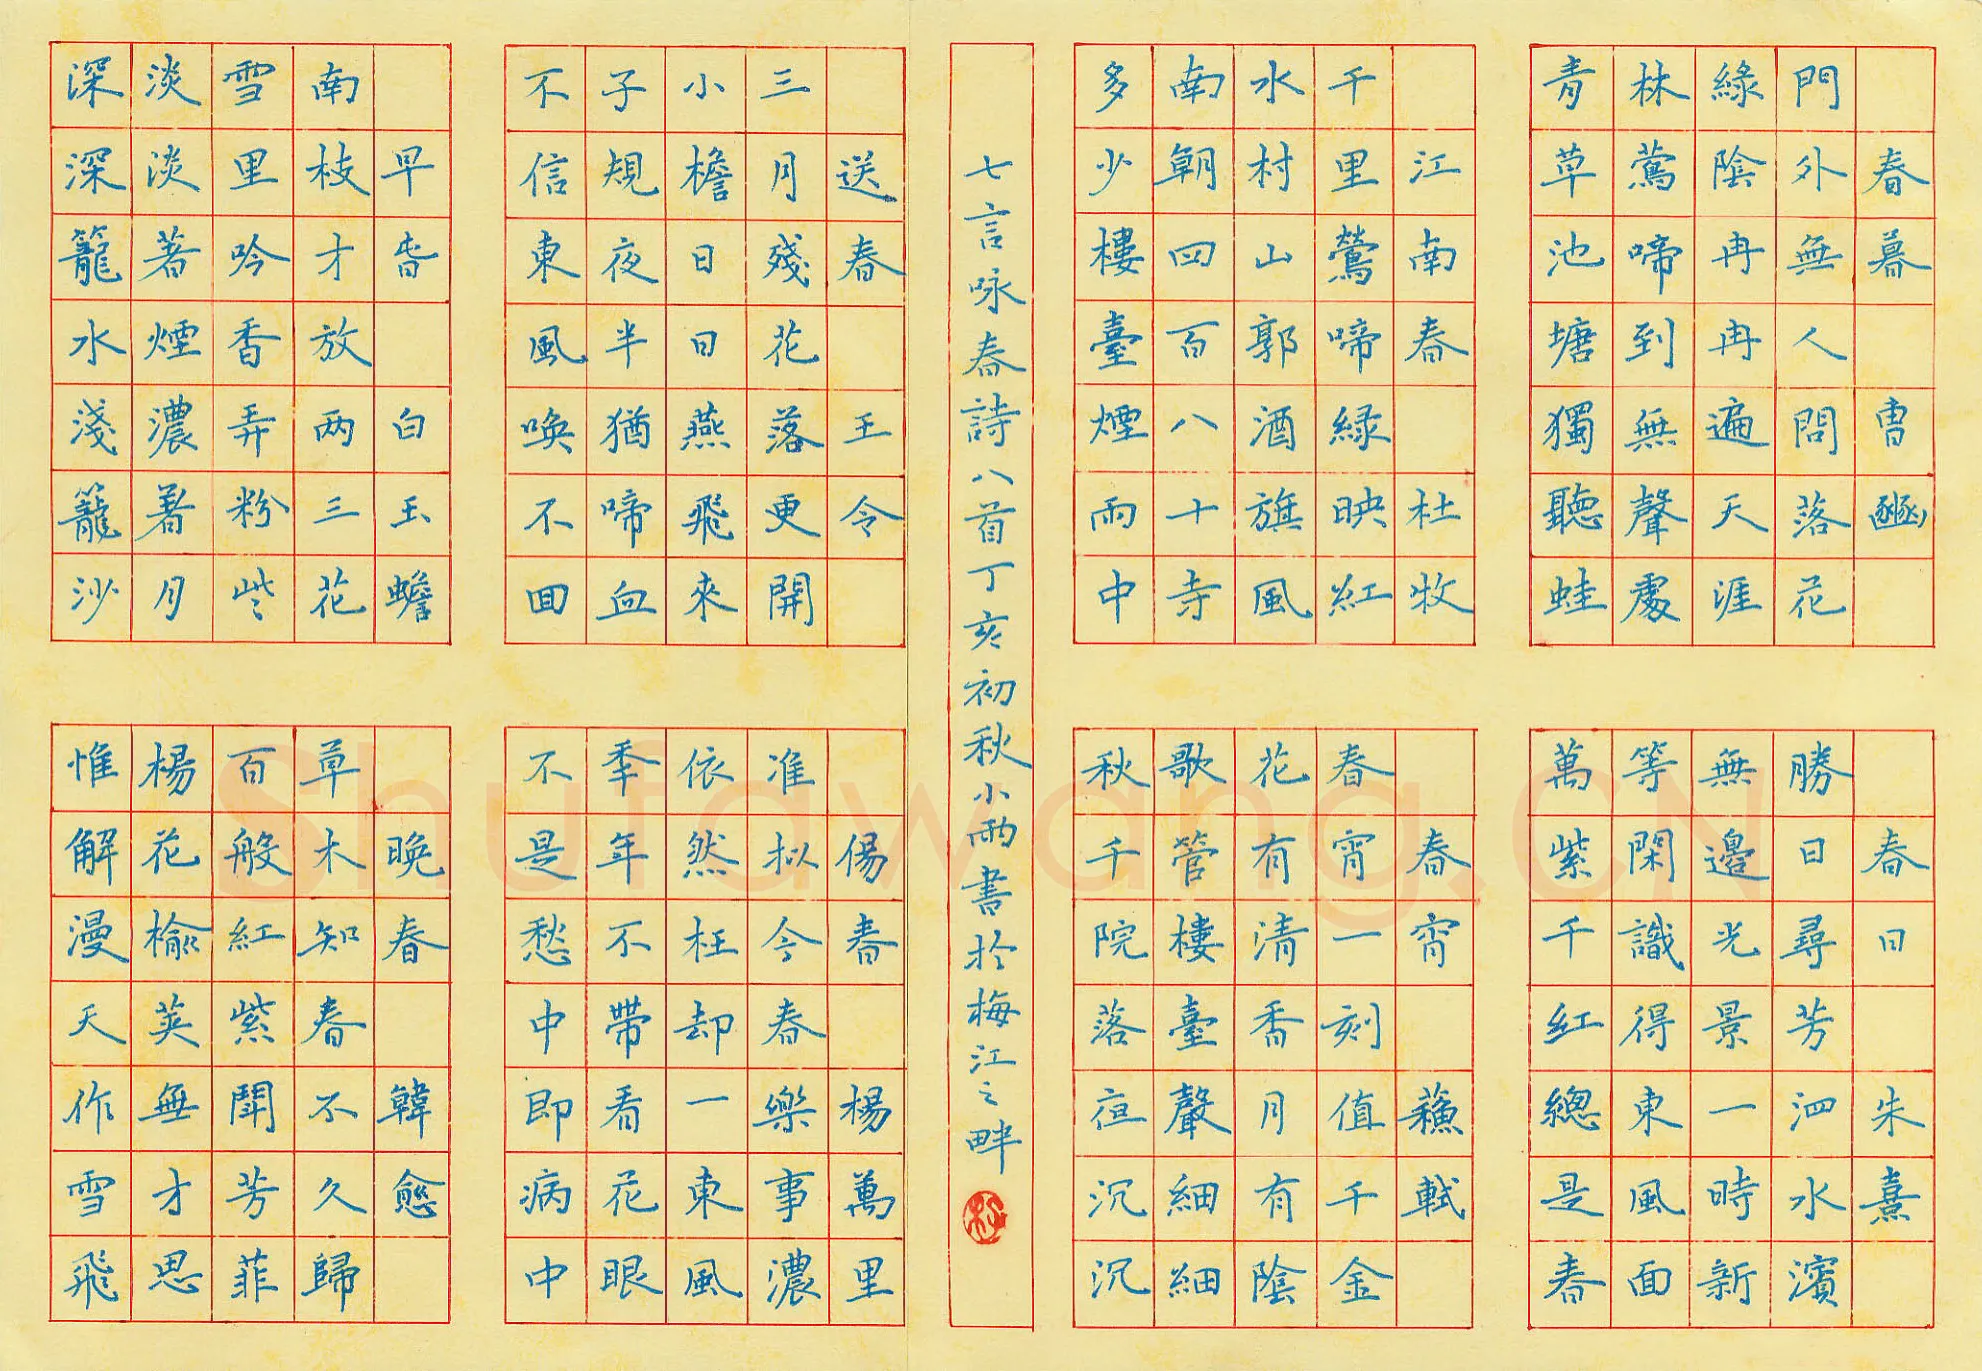 春暮 曹豳
門外無人問落花
綠陰冉冉遍天涯
林鶯啼到無聲處
青草池塘獨聽蛙
江南春 杜牧
千里鶯啼緑映紅
水村山郭酒旗風
南朝四百八十寺
多少樓臺煙雨中
春日 朱熹
勝日尋芳泗水濱
無邊光景一時新
等閑識得東風面
萬紫千紅總是春
春宵 蘓軾
春宵一刻值千金
花有清香月有陰
歌管樓臺聲細細
秋千院落夜沉沉
七言咏春詩八首丁亥初秋小雨書於梅江之畔
送春 王令
三月殘花落更開
小檐日日燕飛來
子規夜半猶啼血
不信東風喚不回
早旾 白玉蟾
南枝才放两三花
雪里吟香弄粉些
淡淡著煙濃著月
深深籠水淺籠沙
傷春 楊萬里
准拟今春樂事濃
依然枉却一東風
秊年不帶看花眼
不是愁中即病中
晚春 韓愈
草木知春不久歸
百般紅紫鬥芳菲
楊花榆莢無才思
惟解漫天作雪飛
Shufawang.CN